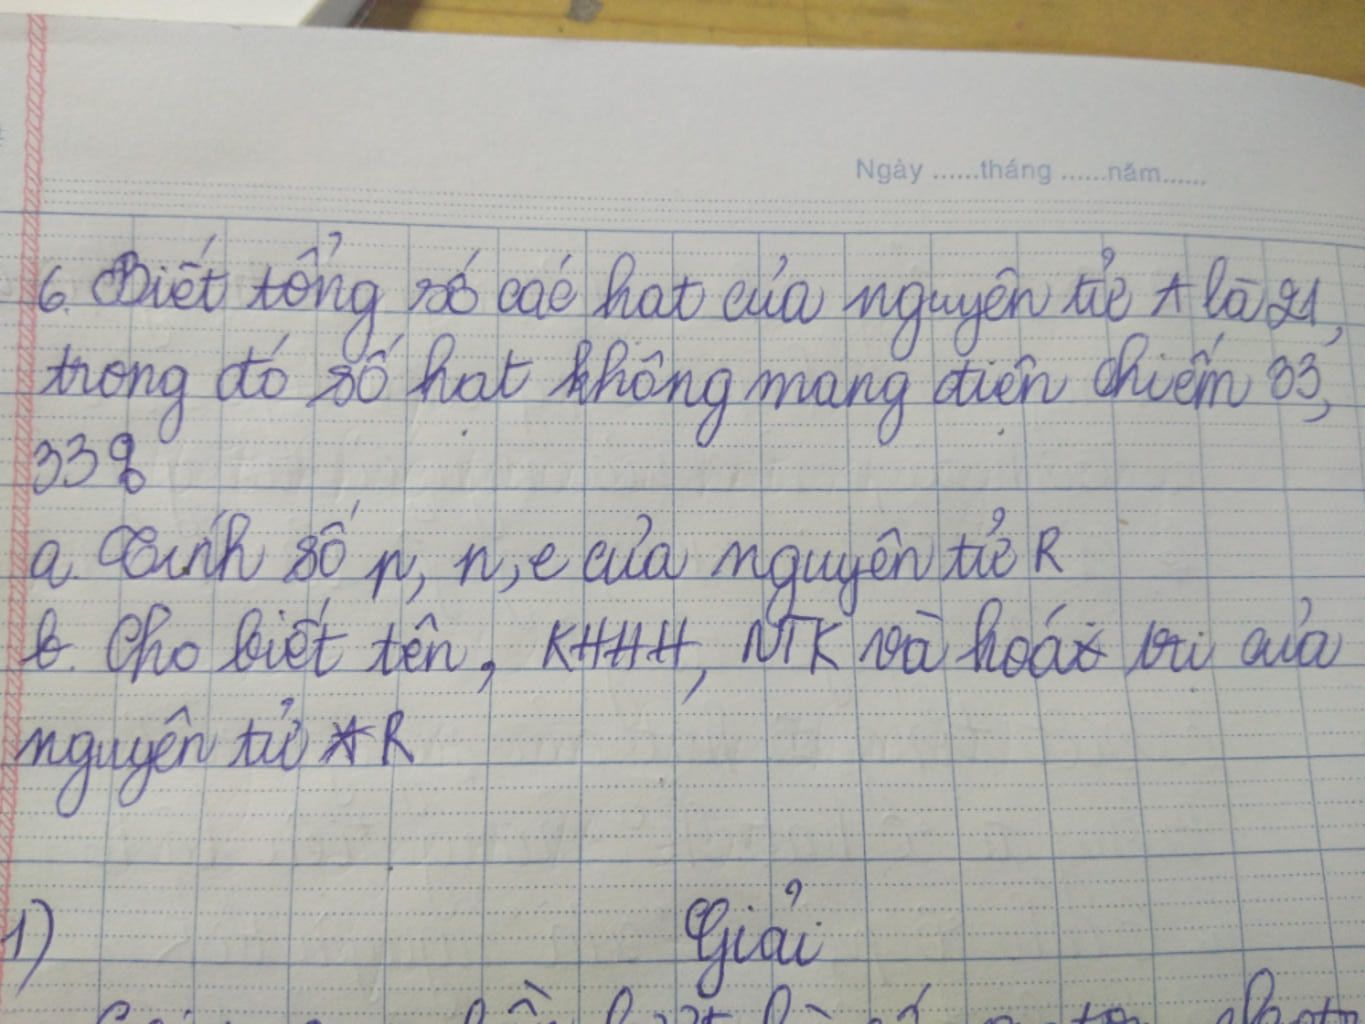 Ngày ......tháng ......năm......
6. Biết tổng số các hat của nguyên tử A là 21,
trong đó số hat không mang điên chiếm 33,
33%
a. Tính số p, n, e của nguyên tử R
b. Cho biết tên, KHHH, NTK và hoá tri của
nguyên tử R
1) Giải